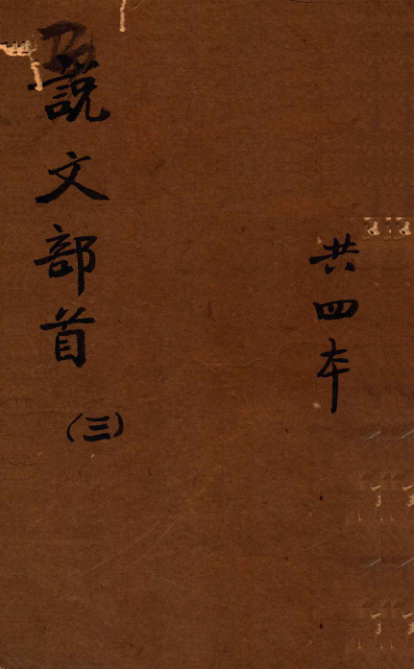 共四本
說文部首
(三)